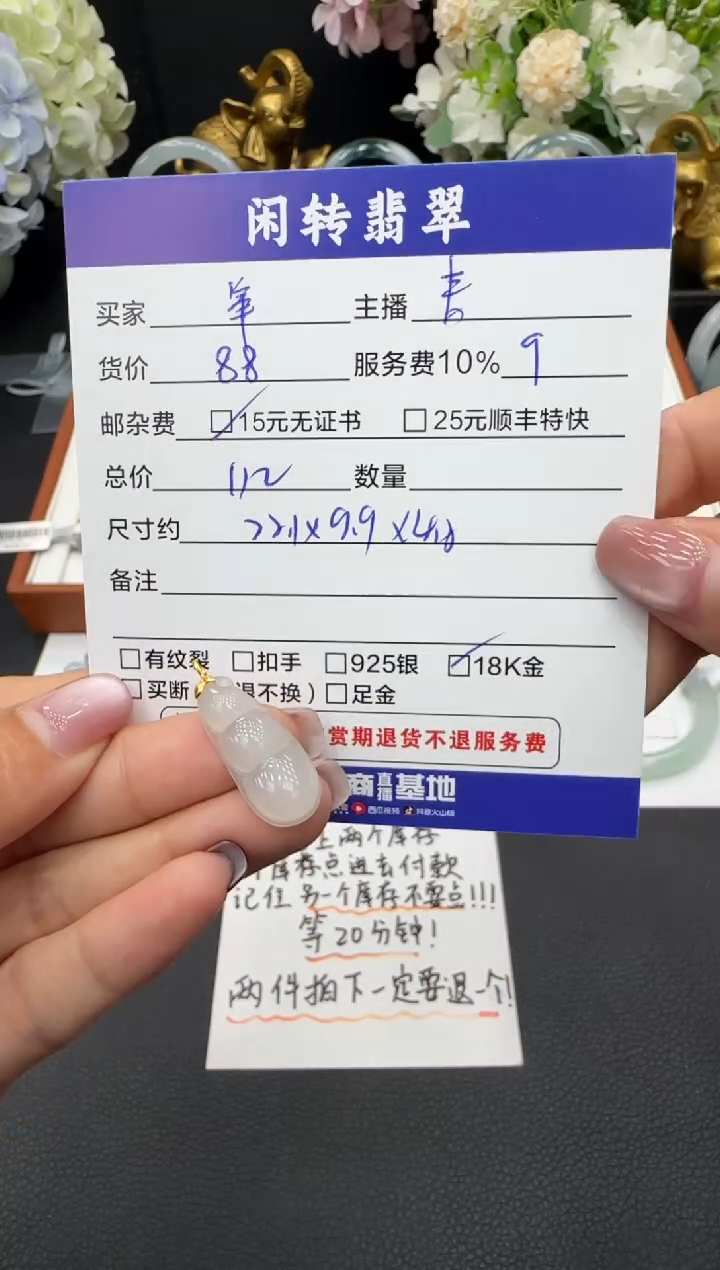 闲转翡翠
买家 羊 主播 青
货价 88 服务费10% 9
邮杂费 15元无证书 25元顺丰特快
总价 112 数量
尺寸约 22.1×9.9×
备注
有纹裂 扣手 925银 18K金
买断 退不换) 足金
赏期退货不退服务费
商直播基地
西瓜视频 抖音火山版
上两个库存
个库存点进去付款
记住 另一个库存不要点!!!
等20分钟!
两件拍下一定要退一个!